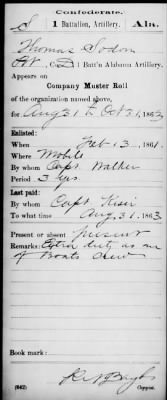 Confederate.
S 1 Battalion, Artillery. Ala.
Thomas Sodon
Pvt., Co. D, 1 Batt'n Alabama Artillery.
Appears on
Company Muster Roll
of the organization named above,
for Aug 31 to Oct 31, 1863.
Enlisted:
When Feb 13, 1861.
Where Mobile
By whom Capt. Walker
Period 3 yrs.
Last paid:
By whom Capt.
To what time Aug. 31, 1863.
Present or absent present
Remarks: Extra duty as one
of Boats Crew
Book mark:
(642) Copyist.